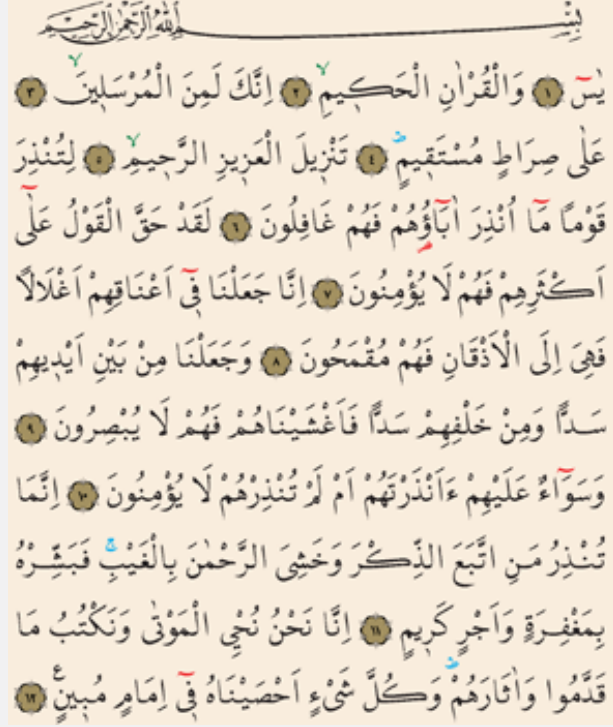 بِسْمِ اللّٰهِ الرَّحْمٰنِ الرَّحِيمِ
يٰسٓ ۝١ وَالْقُرْاٰنِ الْحَكِيمِۙ ۝٢ اِنَّكَ لَمِنَ الْمُرْسَلِينَۙ ۝٣
عَلٰى صِرَاطٍ مُسْتَقِيمٍۜ ۝٤ تَنْزِيلَ الْعَزِيزِ الرَّحِيمِۙ ۝٥ لِتُنْذِرَ
قَوْمًا مَٓا اُنْذِرَ اٰبَٓاؤُ۬هُمْ فَهُمْ غَافِلُونَ ۝٦ لَقَدْ حَقَّ الْقَوْلُ عَلٰٓى
اَكْثَرِهِمْ فَهُمْ لَا يُؤْمِنُونَ ۝٧ اِنَّا جَعَلْنَا فِٓي اَعْنَاقِهِمْ اَغْلَالًا
فَهِىَ اِلَى الْاَذْقَانِ فَهُمْ مُقْمَحُونَ ۝٨ وَجَعَلْنَا مِنْ بَيْنِ اَيْدِيهِمْ
سَدًّا وَمِنْ خَلْفِهِمْ سَدًّا فَاَغْشَيْنَاهُمْ فَهُمْ لَا يُبْصِرُونَ ۝٩
وَسَوَٓاءٌ عَلَيْهِمْ ءَاَنْذَرْتَهُمْ اَمْ لَمْ تُنْذِرْهُمْ لَا يُؤْمِنُونَ ۝١٠ اِنَّمَا
تُنْذِرُ مَنِ اتَّبَعَ الذِّكْرَ وَخَشِىَ الرَّحْمٰنَ بِالْغَيْبِۚ فَبَشِّرْهُ
بِمَغْفِرَةٍ وَاَجْرٍ كَرِيمٍ ۝١١ اِنَّا نَحْنُ نُحْيِ الْمَوْتٰى وَنَكْتُبُ مَا
قَدَّمُوا وَاٰثَارَهُمْۜ وَكُلَّ شَىْءٍ اَحْصَيْنَاهُ فِٓي اِمَامٍ مُبِينٍ ع ۝١٢